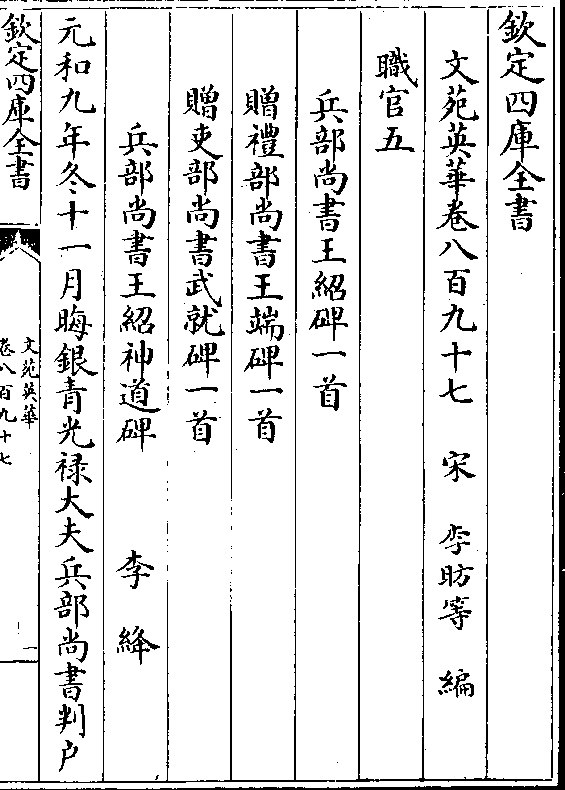 欽定四庫全書
文苑英華卷八百九十七　宋　李昉等　編
職官五
兵部尚書王紹碑一首
贈禮部尚書王端碑一首
贈吏部尚書武就碑一首
兵部尚書王紹神道碑　李絳
元和九年冬十一月晦銀青光禄大夫兵部尚書判户
欽定四庫全書
文苑英華
卷八百九十七
一